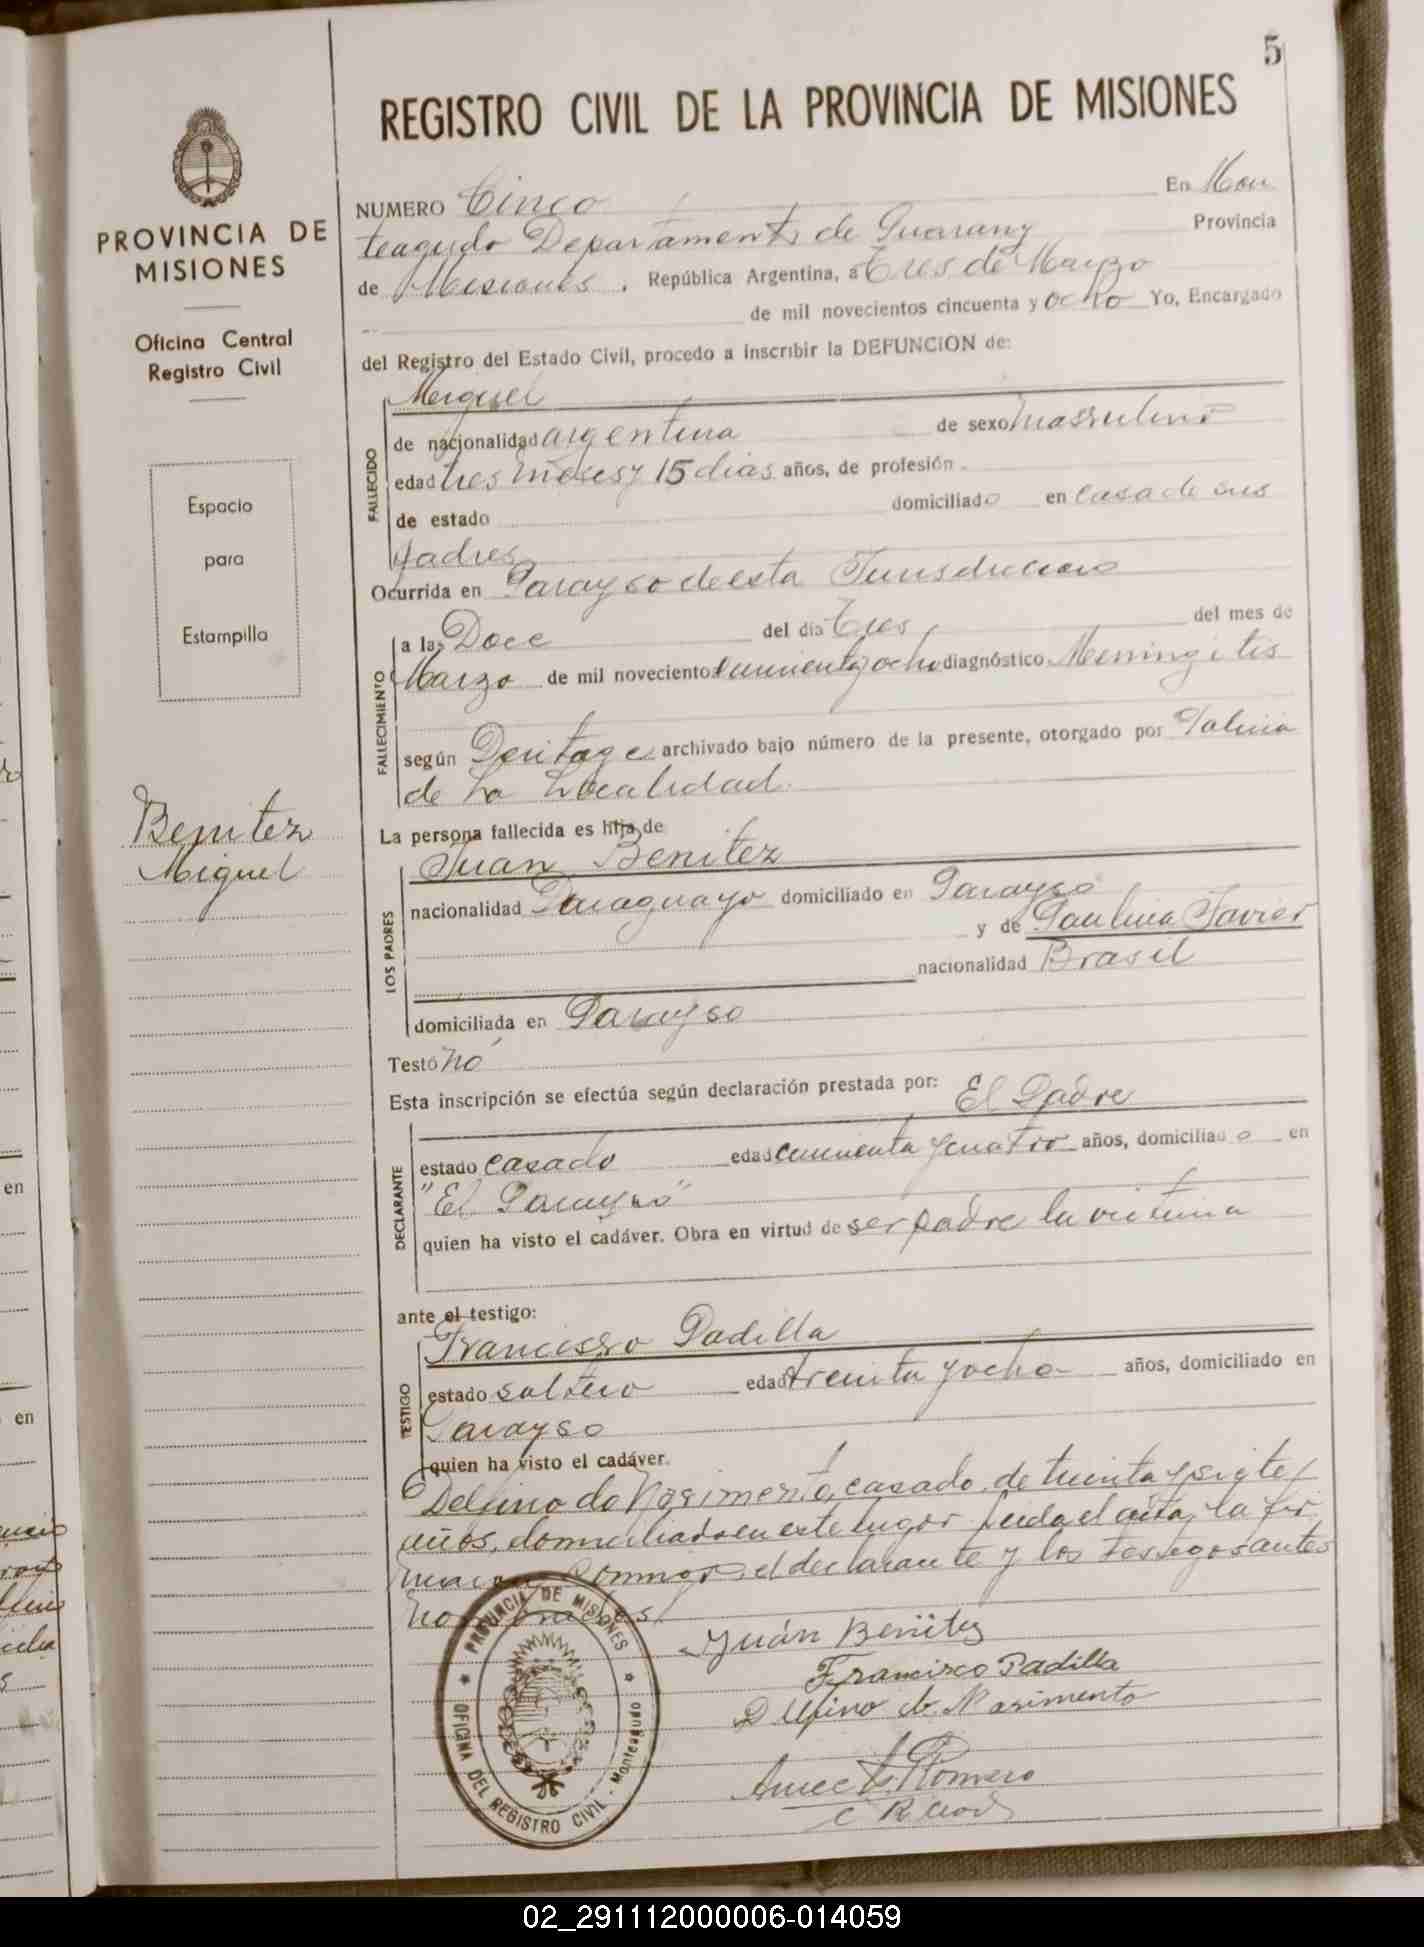 5
REGISTRO CIVIL DE LA PROVINCIA DE MISIONES
PROVINCIA DE
MISIONES
Oficina Central
Registro Civil
Espacio
para
Estampilla
Benitez
Miguel
NUMERO Cinco En Mon
teagudo Departamento de Guarany Provincia
de Misiones. República Argentina, a Tres de Marzo
de mil novecientos cincuenta y ocho Yo, Encargado
del Registro del Estado Civil, procedo a inscribir la DEFUNCION de:
Miguel
FALLECIDO
de nacionalidad argentina de sexo masculino
edad tres meses y 15 dias años, de profesión
de estado domiciliado en casa de sus
padres
Ocurrida en Parayso de esta Jurisdiccion
FALLECIMIENTO
a las Doce del día Tres del mes de
Marzo de mil novecientos cincuenta y ocho diagnóstico Meningitis
según archivado bajo número de la presente, otorgado por Policia
de La Localidad.
La persona fallecida es hijo de
LOS PADRES
Juan Benitez
nacionalidad Paraguayo domiciliado en Parayso
y de Paulina Javier
nacionalidad Brasil
domiciliada en Parayso
Testó no
Esta inscripción se efectúa según declaración prestada por: El Padre
DECLARANTE
estado casado edad cincuenta y cuatro años, domiciliado en
"El Parayso"
quien ha visto el cadáver. Obra en virtud de ser padre la victima
ante el testigo:
TESTIGO
Francisco Padilla
estado soltero edad treinta y ocho años, domiciliado en
Parayso
quien ha visto el cadáver.
Delfino do Nasimento, casado, de treinta y siete
años, domiciliado en este lugar leida el acta, la fir
man conmigo el declarante y los testigos antes
Juán Benitez
Francisco Padilla
Delfino do Nasimento
Romero
PROVINCIA DE MISIONES
OFICINA DEL REGISTRO CIVIL - Monteagudo
en
en
02_291112000006-014059